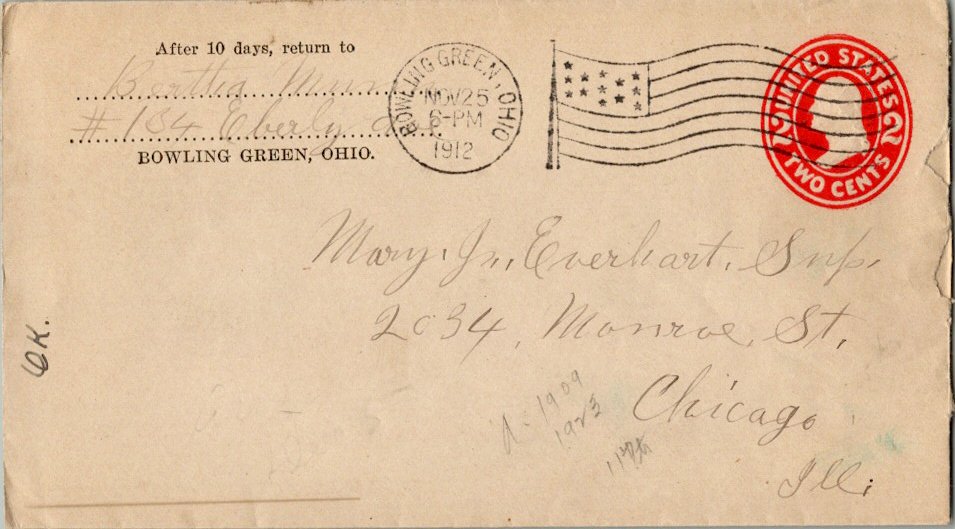 After 10 days, return to
Bertha
#184 Eberly Ave.
BOWLING GREEN, OHIO.
BOWLING GREEN, OHIO
NOV 25
6-PM
1912
UNITED STATES
2 2
TWO CENTS
Mary. Jn. Everhart. Sup.
2034, Monroe St,
Chicago
Ill.
OK.
1909
1923